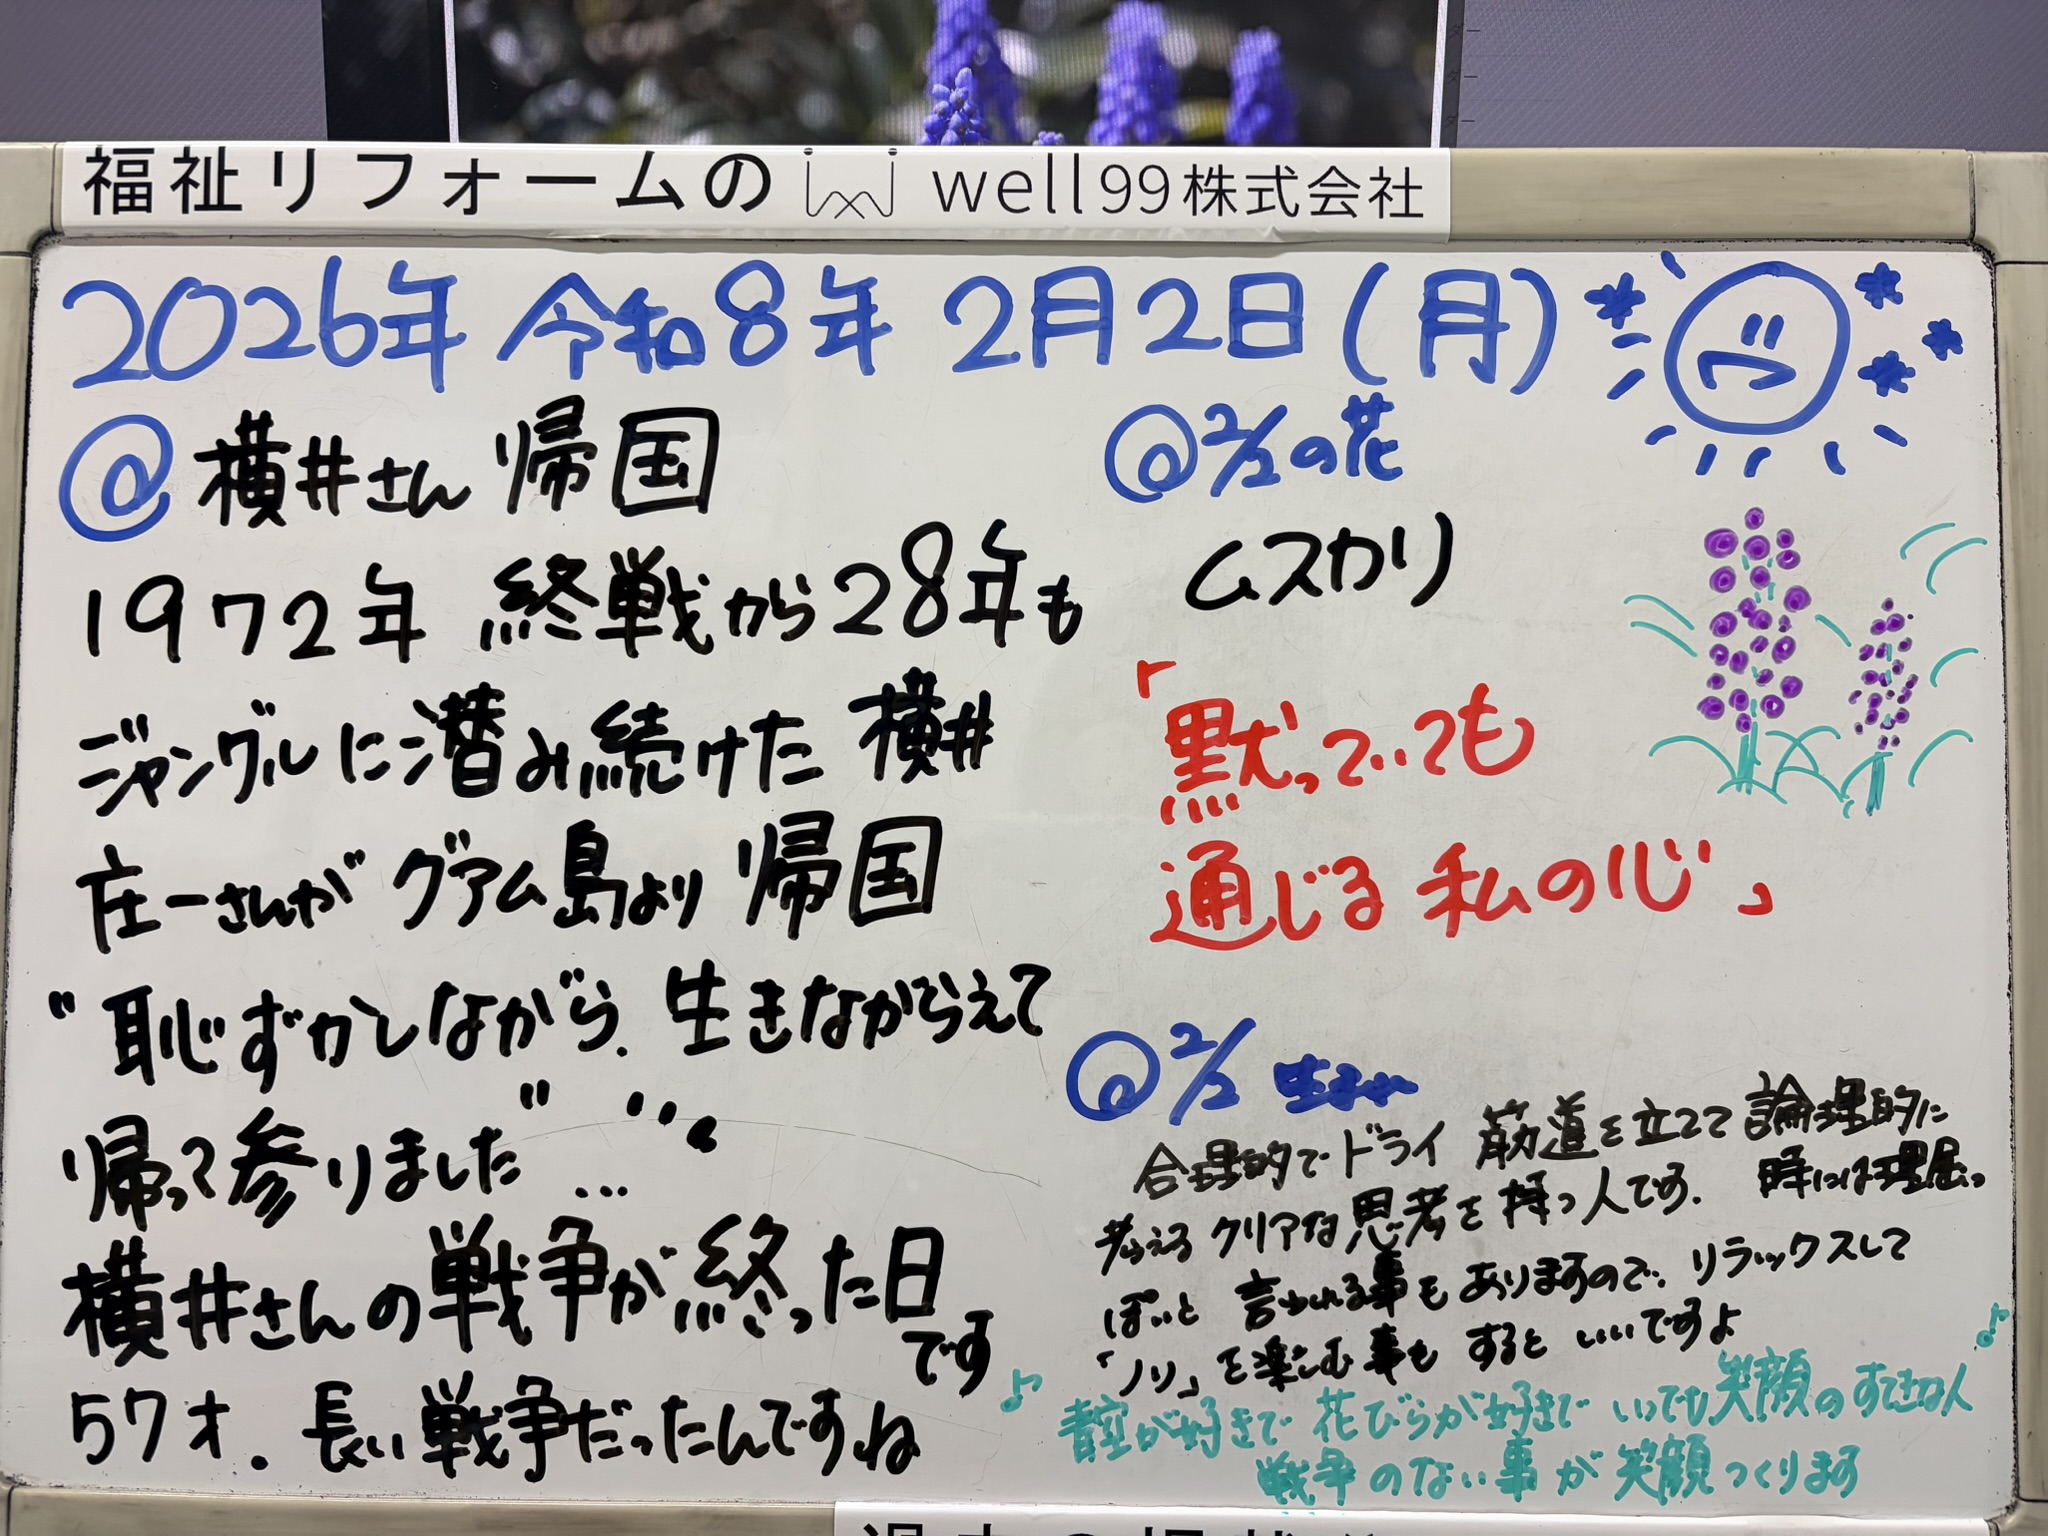 福祉リフォームの well99株式会社
2026年 令和8年 2月2日(月)
@横井さん 帰国
1972年 終戦から28年も
ジャングルに潜み続けた 横井
庄一さんが グアム島より 帰国
"恥ずかしながら、生きながらえて
帰って参りました"…
横井さんの戦争が終った日
です
57才. 長い戦争だったんですね
@2/2の花
ムスカリ
「黙っていても
通じる 私の心」
@2/2 生まれ
合理的でドライ 筋道を立てて 論理的に
考える クリアな思考を持つ人です. 時には理屈っ
ぽいと 言われる事もありますので、リラックスして
「ノリ」を楽しむ事も するといいですよ
♪青空が好きで 花びらが好きで いつでも笑顔のすてきな人♪
戦争のない事が 笑顔つくります